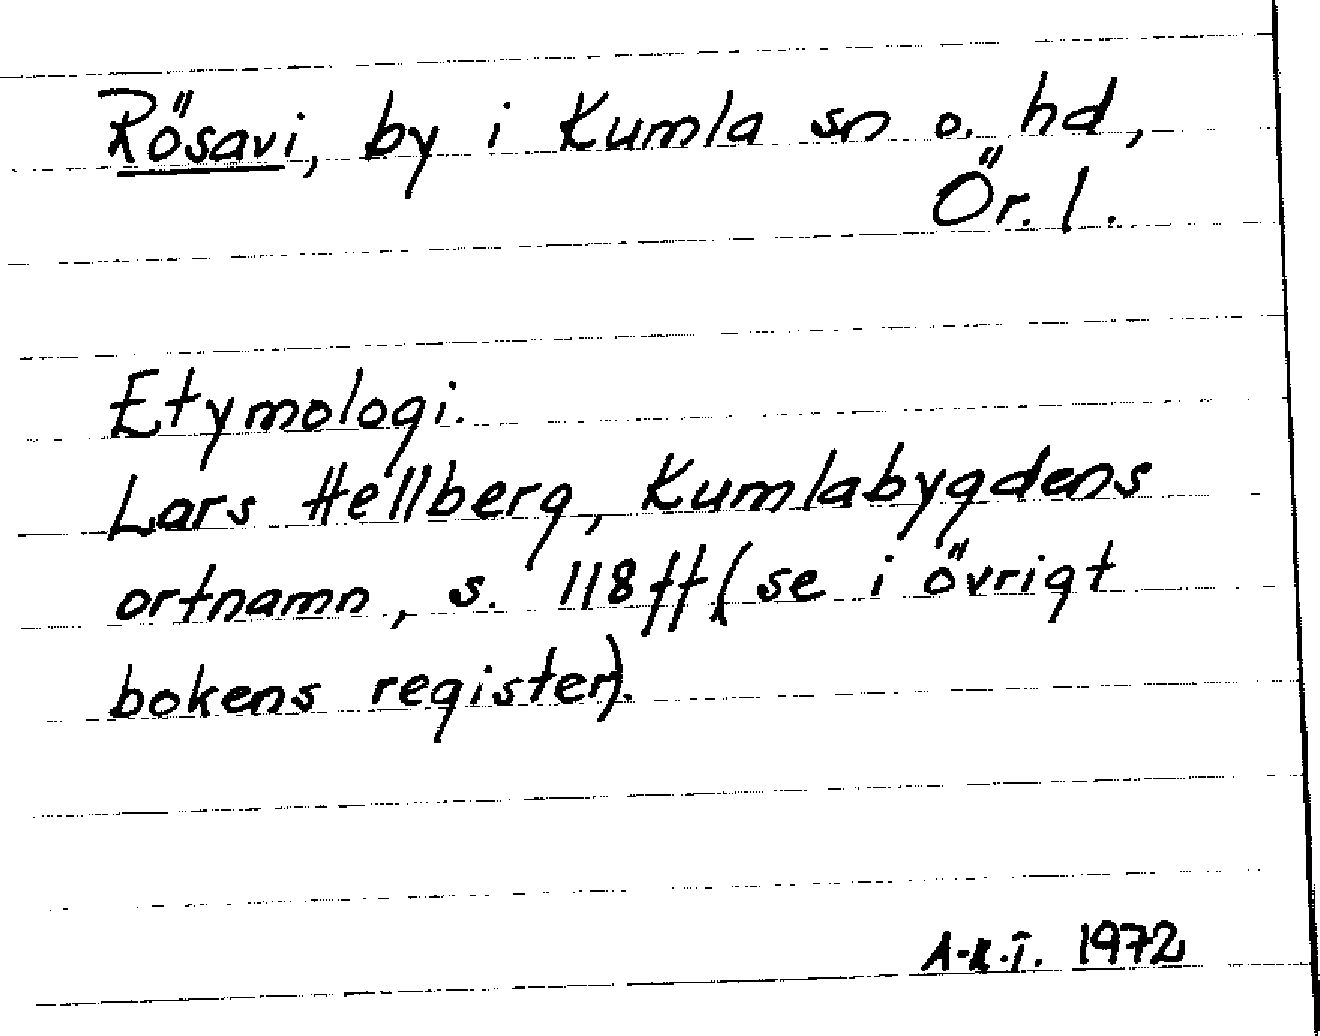 Rösavi, by i Kumla sn o. hd,
Ör. l.
Etymologi.
Lars Hellberg, Kumlabygdens
ortnamn, s. 118 ff (se i övrigt
bokens register).
1972